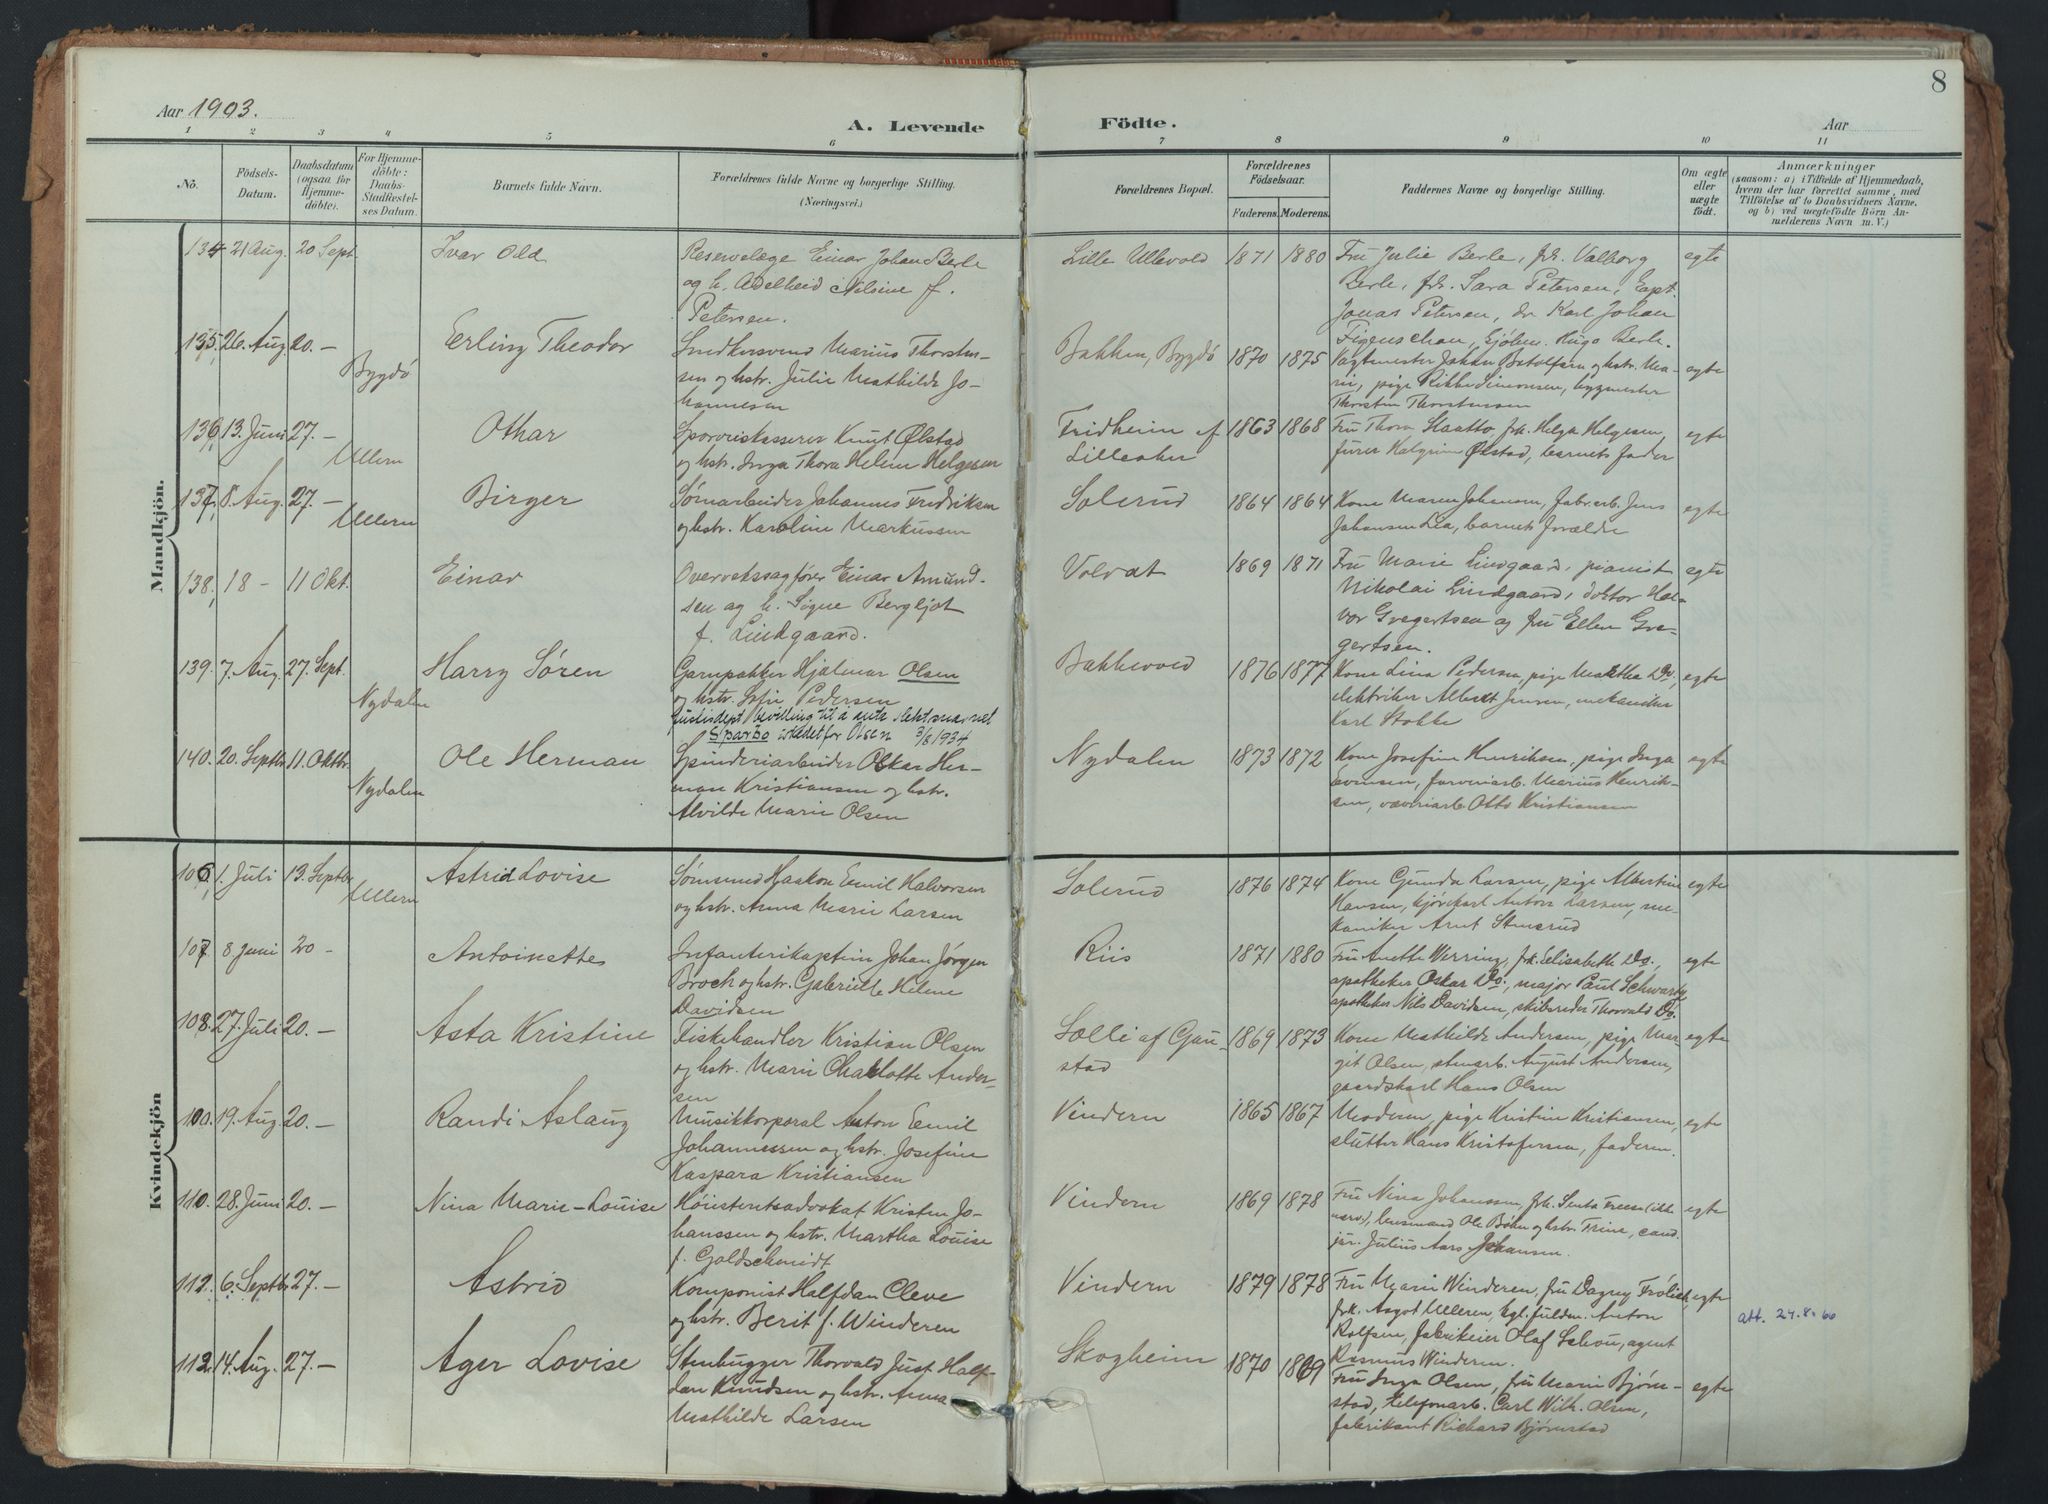 8
Aar 1903.
A. Levende Födte.
Aar
1 2 3 4 5 6 7 8 9 10 11
No.
Födsels-
Datum.
Daabsdatum
(ogsaa for
Hjemme-
döbte).
For Hjemme-
döbte:
Daabs-
Stadfæstel-
ses Datum.
Barnets fulde Navn.
Forældrenes fulde Navne og borgerlige Stilling.
(Næringsvei.)
Forældrenes Bopæl.
Forældrenes
Födselsaar.
Faderens. Moderens.
Faddernes Navne og borgerlige Stilling.
Om ægte
eller
uægte
födt.
Anmærkninger
(saasom: a) i Tilfælde af Hjemmedaab,
hvem der har forrettet samme, med
Tilföielse af to Daabsvidners Navne.
og b) ved uægtefödte Börn An-
melderens Navn m. V.)
Mandkjön.
134 21 Aug. 20 Sept. Ivar Odd
Reservelæge Einar Johan Berle
og h. Adelheid Nilsine f.
Petersen.
Lille Ullevold 1871 1880
Fru Julie Berle, frk. Valborg
Berle, frk. Sara Petersen, Capt.
Jonas Petersen, dr Karl Johan
Figenschau, Hugo Berle.
egte
135, 26. Aug. 20. – Bygdö Erling Theodor
Snedkersvend Marius Thorsten-
sen og hstr. Julie Mathilde Jo-
hannesen
Bakken, Bygdö 1870 1875
Vagtmester Johan Botolfsen og hstr. Ma-
ri, pige Rikke Simonsen, bygmester
Thorsten Thorstensen
egte
136, 13. Juni 27. – Ullern Othar
Sporveiskasserer Knut Ølstad
og hstr. Inga Thora Helene Helgesen
Fridheim af
Lilleaker
1863 1868
Fru Thora Haatto, frk. Helga Helgesen,
furer Halgrim Ølstad, barnets fader
egte
137, 8. Aug. 27. – Ullern Birger
Sömarbeider Johannes Fredriksen
og hstr. Karoline Markussen
Solerud 1864 1864
Kone Maren Johansen, fabr.arb. Jens
Johansen Lia, barnets forældre
egte
138, 18 – 11 Okt. Einar
Overretssagfører Einar Amund-
sen og h. Signe Bergljot
f. Lindgaard.
Volvat 1869 1871
Fru Marie Lindgaard, pianist
Nikolai Lindgaard, doktor Hal-
vor Gregertsen og fru Ellen Gre-
gertsen.
egte
139. 7. Aug. 27. Sept. Nydalen Harry Sören
Garnpakker Hjalmar Olsen
og hstr. Sofie Pedersen
Justisdept bevilling til å anta slektsnavnet
Sparbo istedetfor Olsen 3/8 1934
Bakkevold 1876 1877
Kone Lina Pedersen, pige Martha Do.,
elektriker Albert Jensen, mekaniker
Karl Stokke
egte
140. 20. Septbr. 11. Oktbr. Nydalen Ole Herman
Spinderiarbeider Oskar Her-
man Kristiansen og hstr.
Alvilde Marie Olsen
Nydalen 1873 1872
Kone Josefine Henriksen, pige Inga
Evensen, farveriarb. Marius Henrik-
sen, væveriarb. Otto Kristiansen
egte
Kvindekjön
106, 1. Juli 13. Septbr. Ullern Astrid Lovise
Sömsmed Haakon Emil Halvorsen
og hstr. Anna Marie Larsen
Solerud 1876 1874
Kone Gunda Larsen, pige Albertine
Hansen, kjörekarl Anton Larsen, me-
kaniker Arnt Stensrud
egte
107 8. juni 20 – Antoinettes
Infanterikaptein Johan Jörgen
Broch og hstr. Gabrielle Helene
Davidsen
Riis 1871 1880
Fru Anette Werring, frk. Elisabeth Do.,
apotheker Oskar Do., major Paul Schwartz,
apotheker Nils Davidsen, skibsreder Thorvald Do.
egte
108. 27. Juli 20. – Asta Kristine
Fiskehandler Kristian Olsen
og hstr. Marie Charlotte Ander-
sen
Solli af Gau-
stad
1869 1873
Kone Mathilde Andersen, pige Mar-
git Olsen, stenarb. August Andersen,
gaardskarl Hans Olsen
egte
100. 19. Aug. 20. – Randi Aslaug
Musikkorporal Anton Emil
Johannessen og hstr. Josefine
Kaspara Kristiansen
Vindern 1865 1867
Moderen, pige Kristine Kristiansen,
slutter Hans Kristofersen, faderen.
egte
110. 28. Juni 20. – Nina Marie-Louise
Höiesteretsadvokat Kristen Jo-
hanssen og hstr. Martha Louise
f. Goldschmidt
Vindern 1869 1878
Fru Nina Johanssen, frk. Senta Freese (ikke
nærv.), lensmand Ole Böhn og hstr. Trine, cand.
jur. Julius Aars Johansen.
egte
112. 6. Septbr. 27. – Astrid
Komponist Halfdan Cleve
og hstr. Berit f. Winderen
Vindern 1879 1878
Fru Marie Winderen, fru Dagny Frölich,
frk. Aagot Ulleren, kgl. fuldm. Anton
Rolfsen, fabrikeier Olaf Schou, agent
Rasmus Winderen.
egte
att. 24.8.60
112. 14. Aug. 27. – Ager Lovise
Stenhugger Thorvald Just Half-
dan Knudsen og hstr. Anna
Mathilde Larsen
Skogheim 1870 1869
Fru Inga Olsen, fru Marie Björn-
stad, telefonarb. Carl Wilh. Olsen,
fabrikant Richard Björnstad
egte